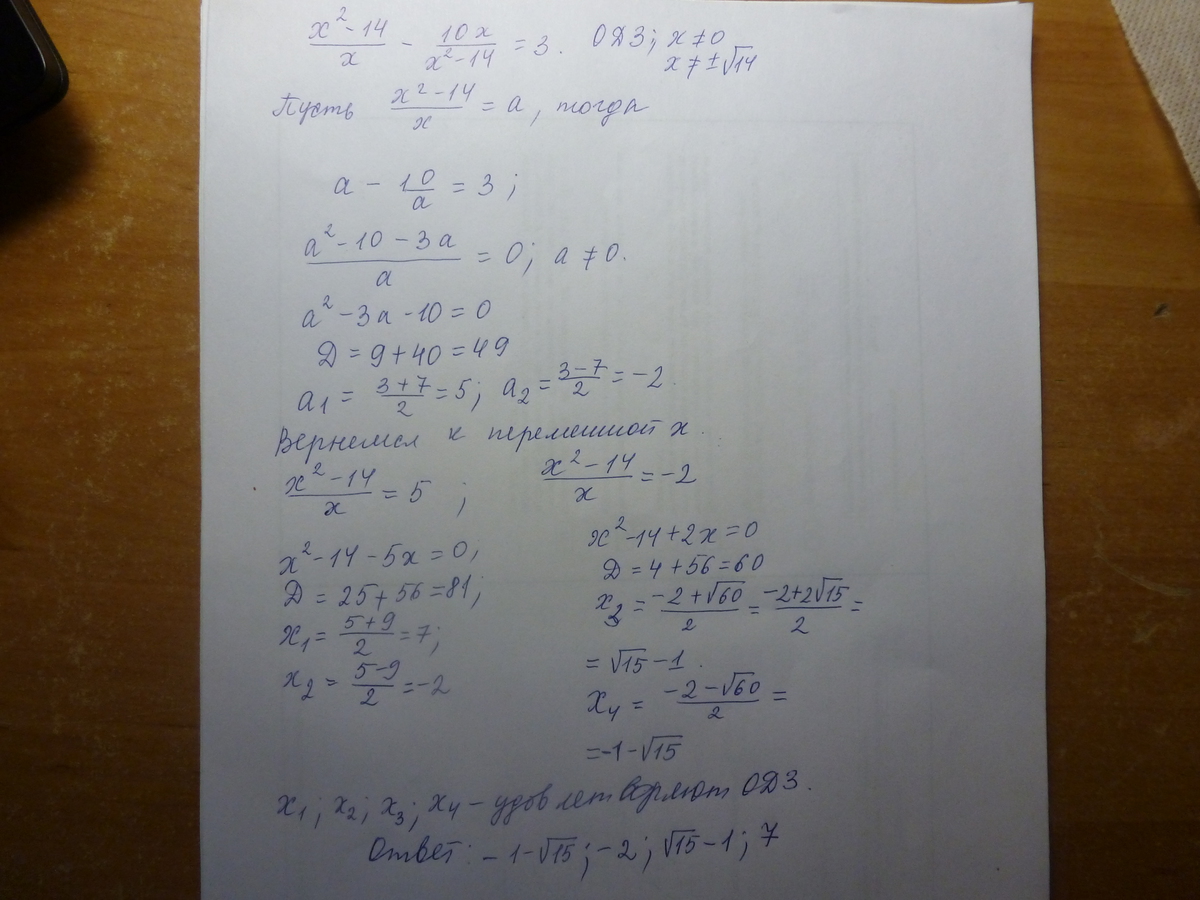 x² - 14 / x - 10x / x² - 14 = 3. ОДЗ; x ≠ 0
x ≠ ±√14
Пусть x² - 14 / x = a, тогда
a - 10 / a = 3;
a² - 10 - 3a / a = 0; a ≠ 0.
a² - 3a - 10 = 0
Д = 9 + 40 = 49
a₁ = 3 + 7 / 2 = 5; a₂ = 3 - 7 / 2 = -2.
Вернемся к переменной x.
x² - 14 / x = 5 ;
x² - 14 - 5x = 0;
Д = 25 + 56 = 81;
x₁ = 5 + 9 / 2 = 7;
x₂ = 5 - 9 / 2 = -2
x² - 14 / x = -2
x² - 14 + 2x = 0
Д = 4 + 56 = 60
x₃ = -2 + √60 / 2 = -2 + 2√15 / 2 =
= √15 - 1.
x₄ = -2 - √60 / 2 =
= -1 - √15
x₁; x₂; x₃; x₄ - удовлетворяют ОДЗ.
Ответ: -1 - √15; -2; √15 - 1; 7